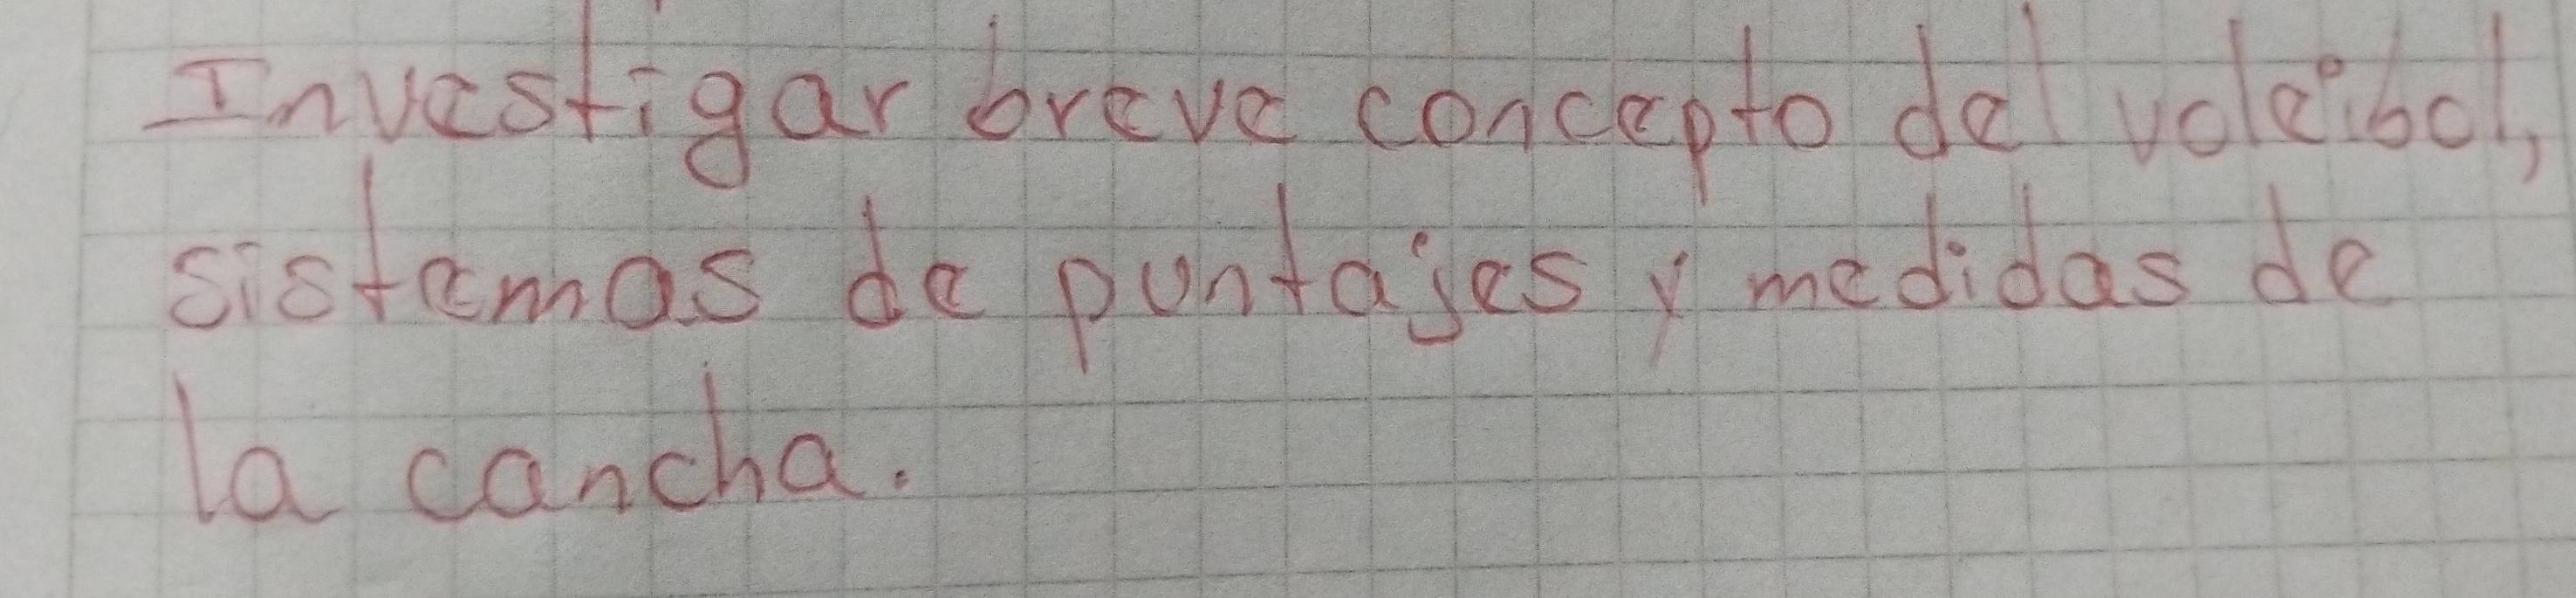 Investigar breve concepto del voleibol,
sistemas de puntajes y medidas de
la cancha.